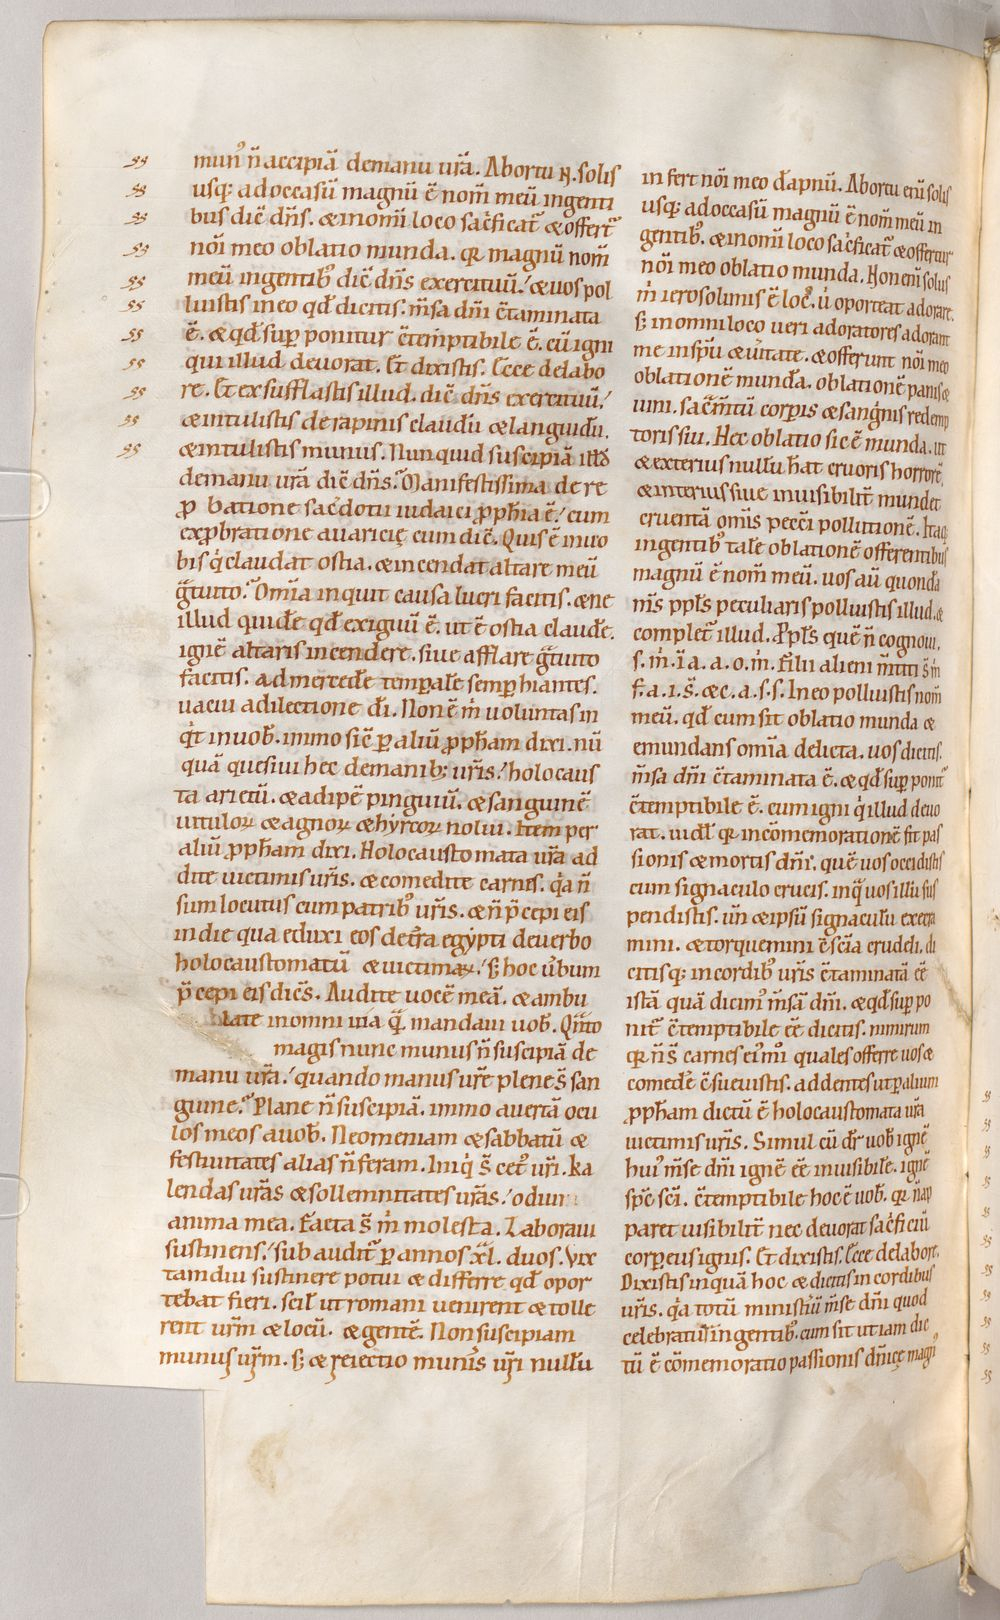 mun᾿ n̄ accipiā demanu ur̄a. Abortu N. solis
usq; adoccasū magnū ē nom̄ meū ingenti
bus dic̄ dn̄s. & inom̄i loco sac̓ficat᷑ & offert᷑
nōi meo oblatio munda. qr magnū nom̄
meū ingentib᾿ dic̄ dn̄s exercituū. & uos pol
luistis in eo qđ dicitis. m̄sa dn̄i c̄taminata
ē. & qđ sup̲ ponitur c̄temptibile ē. cū igni
qui illud deuorat. Et dixistis. Ecce delabo
re. Et exsufflastis illud. dic̄ dn̄s exercituū.
& intulistis derapinis claudū & languidū.
& intulistis munus. Nunquid suscipiā illđ
demanu ur̄a dic̄ dn̄s. Manifestissima de re
p̱ batione sac̓dotū iudaici p̱ph̄ia ē. cum
exp̱bratione auaricię cum dic̄. Quis ē inuo
bis q̓ claudat ostia. & incendat altare meū
g̃tuito. Om̄ia inquit causa lucri facitis. & ne
illud quidē qđ exiguū ē. ut ē ostia claudē.
ignē altaris incendere. siue afflare g̃tuito
facitis. ad mercedē temp̲alē semp̲ hiantes.
uacui adilectione dī. Non ē m̓ uoluntas in
q̓t in uob̄. immo sic̄ p̲ aliū p̱ph̄am dixi. nū
quā quesiui hec de manib; ur̄is. holocaus
ta arietū. & adipē pinguiū. & sanguinē
uituloꝝ & agnoꝝ & hyrcoꝝ nolui. Item per
aliū p̱ph̄am dixi. Holocaustomata ur̄a ad
dite uictimis ur̄is. & comedite carnes. q̓a n̄
sum locutus cum patrib᾿ ur̄is. & n̄ p̄cepi eis
in die qua eduxi eos de tr̄a egypti deuerbo
holocaustomatū & uictimaꝝ. s; hoc ūbum
p̄cepi eis dic̄s. Audite uocē meā. & ambu
late inomni uia q̄ mandaui uob̄. Q̃nto
magis nunc munus n̄ suscipiā de
manu ur̄a. quando manus ur̄e plene s̄ san
guine. Plane n̄ suscipiā. immo auertā ocu
los meos auob̄. Neomeniam & sabbatū &
festiuitates alias n̄ feram. Iniq̓ s̄ cet᾿ ur̄i. ka
lendas ur̄as & sollemnitates ur̄as. odiui
anima mea. facta s̄ m̓ molesta. Laboraui
sustinens. sub audit᷑ p̲ annos xl. duos. Vix
tamdiu sustinere potui & differre qđ opor
tebat fieri. scil̄ ut romani uenirent & tolle
rent ur̄m & locū. & gentē. Non suscipiam
munus ur̄m. s; & reiectio mun̄is ur̄i nullū
infert nōi meo dāpnū. Abortu enī solis
usq; adoccasū magnū ē nom̄ meū in
gentib᾿. & inom̄i loco sac̓ficat᷑ & offertur
nōi meo oblatio munda. Non enī solus
m̓ ierosolimis ē loc᾿. u̓ oporteat adorare.
s; inomni loco ueri adoratores adorant
me insp̄u & ūitate. & offerunt nōi meo
oblationē mundā. oblationē panis &
uini. sac̄m̄tū corp̲is & sang̓nis redemp
toris sui. Hec oblatio sic ē munda. ut
& exterius nullū h̄at cruoris horrorē
& interius siue inuisibilit̄ mundet
cruentā om̄is pecc̄i pollutionē. Itaq;
ingentib᾿ talē oblationē offerentibus
magnū ē nom̄ meū. uos aū quondā
m̄s ppl̄s peculiaris polluistis illud. &
complet᷑ illud. Ppl̄s quē n̄ cognoui.
s. m̓. ī a. a. o. m̓. Filii alieni m̄titi s̄ m̓
F. a. i. s̄. & c. a. s. s. In eo polluistis nom̄
meū. qđ cum sit oblatio munda &
emundans om̄ia delicta. uos dicitis.
m̄sa dn̄i c̄taminata ē. & qđ sup̲ponit᷑
c̄temptibile ē. cum igni q̓ illud deuo
rat. uidel̄ qr incōmemorationē fit pas
sionis & mortis dn̄i. quē uos occidistis
cum signaculo crucis. inq̓ uos illū sus
pendistis. un̄ & ipsū signaculū execra
mini. & torquemini c̄sc̄ia crudeli. di
citisq; incordib᾿ ur̄is c̄taminatā ēē
istā quā dicim᾿ m̄sā dn̄i. & qđ sup̲ po
nit᷑ c̄temptibile ēē dicitis. nimirum
qr n̄ s̄ carnes ei᾿mōi quales offerre uos &
comedē c̄sueuistis. addentes ut p̲ alium
p̱ph̄am dictū ē holocaustomata ur̄a
uictimis ur̄is. Simul cū dr̄ uob̄ ignē
hui᾿ m̄se dn̄i ignē ēē inuisibilē. ignē
sp̄c sc̄i. c̄temptibile hoc ē uob̄. qr n̄ ap
paret uisibilit̄ nec deuorat sac̓ficiū
corp̲eus ignis. Et dixistis. Ecce delabore.
Dixistis inquā hoc & dicitis in cordibus
ur̄is. q̓a totū ministīū m̄se dn̄i quod
celebratur ingentib᾿. cum sit ut iam dic
tū ē cōmemoratio passionis dn̄icę magn̓